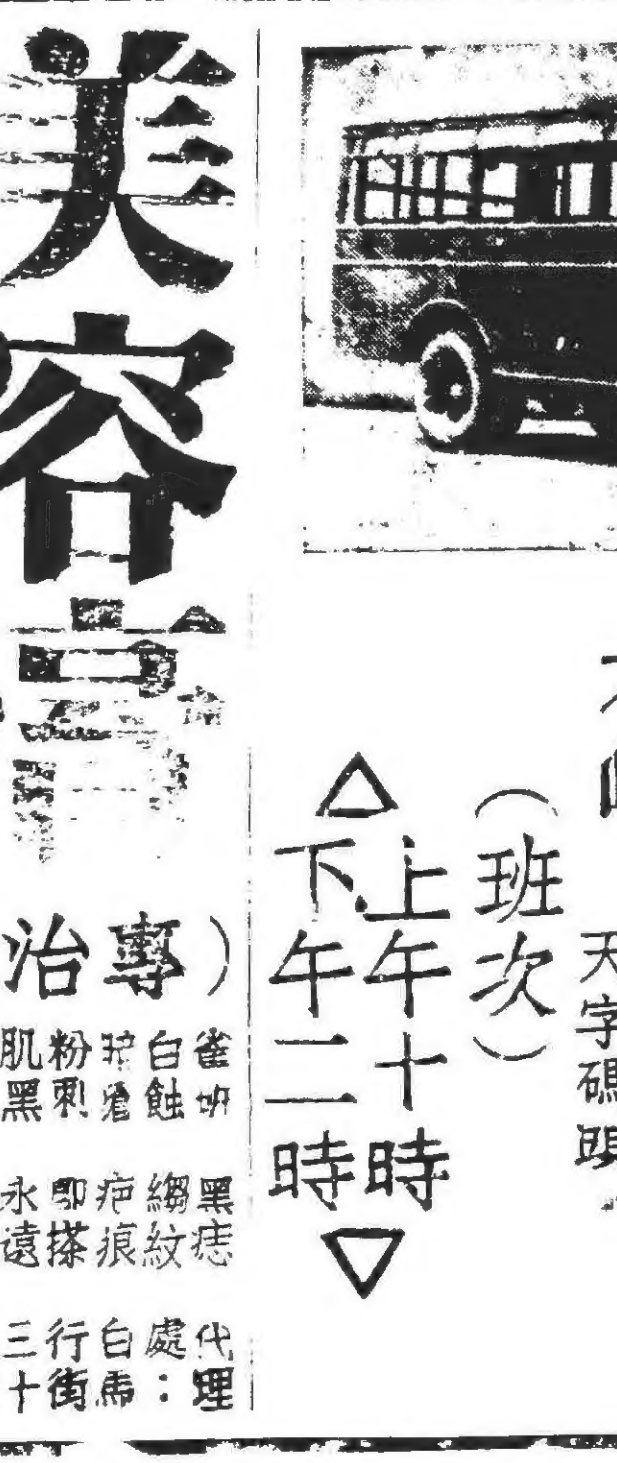 天字碼頭
（班次）
△
上午十時
下午二時
▽
美容膏
專治）
雀班 白蝕 粉刺 肌黑
黑痣 縐紋 疤痕 即搽 永遠
代理處：白馬行街三十